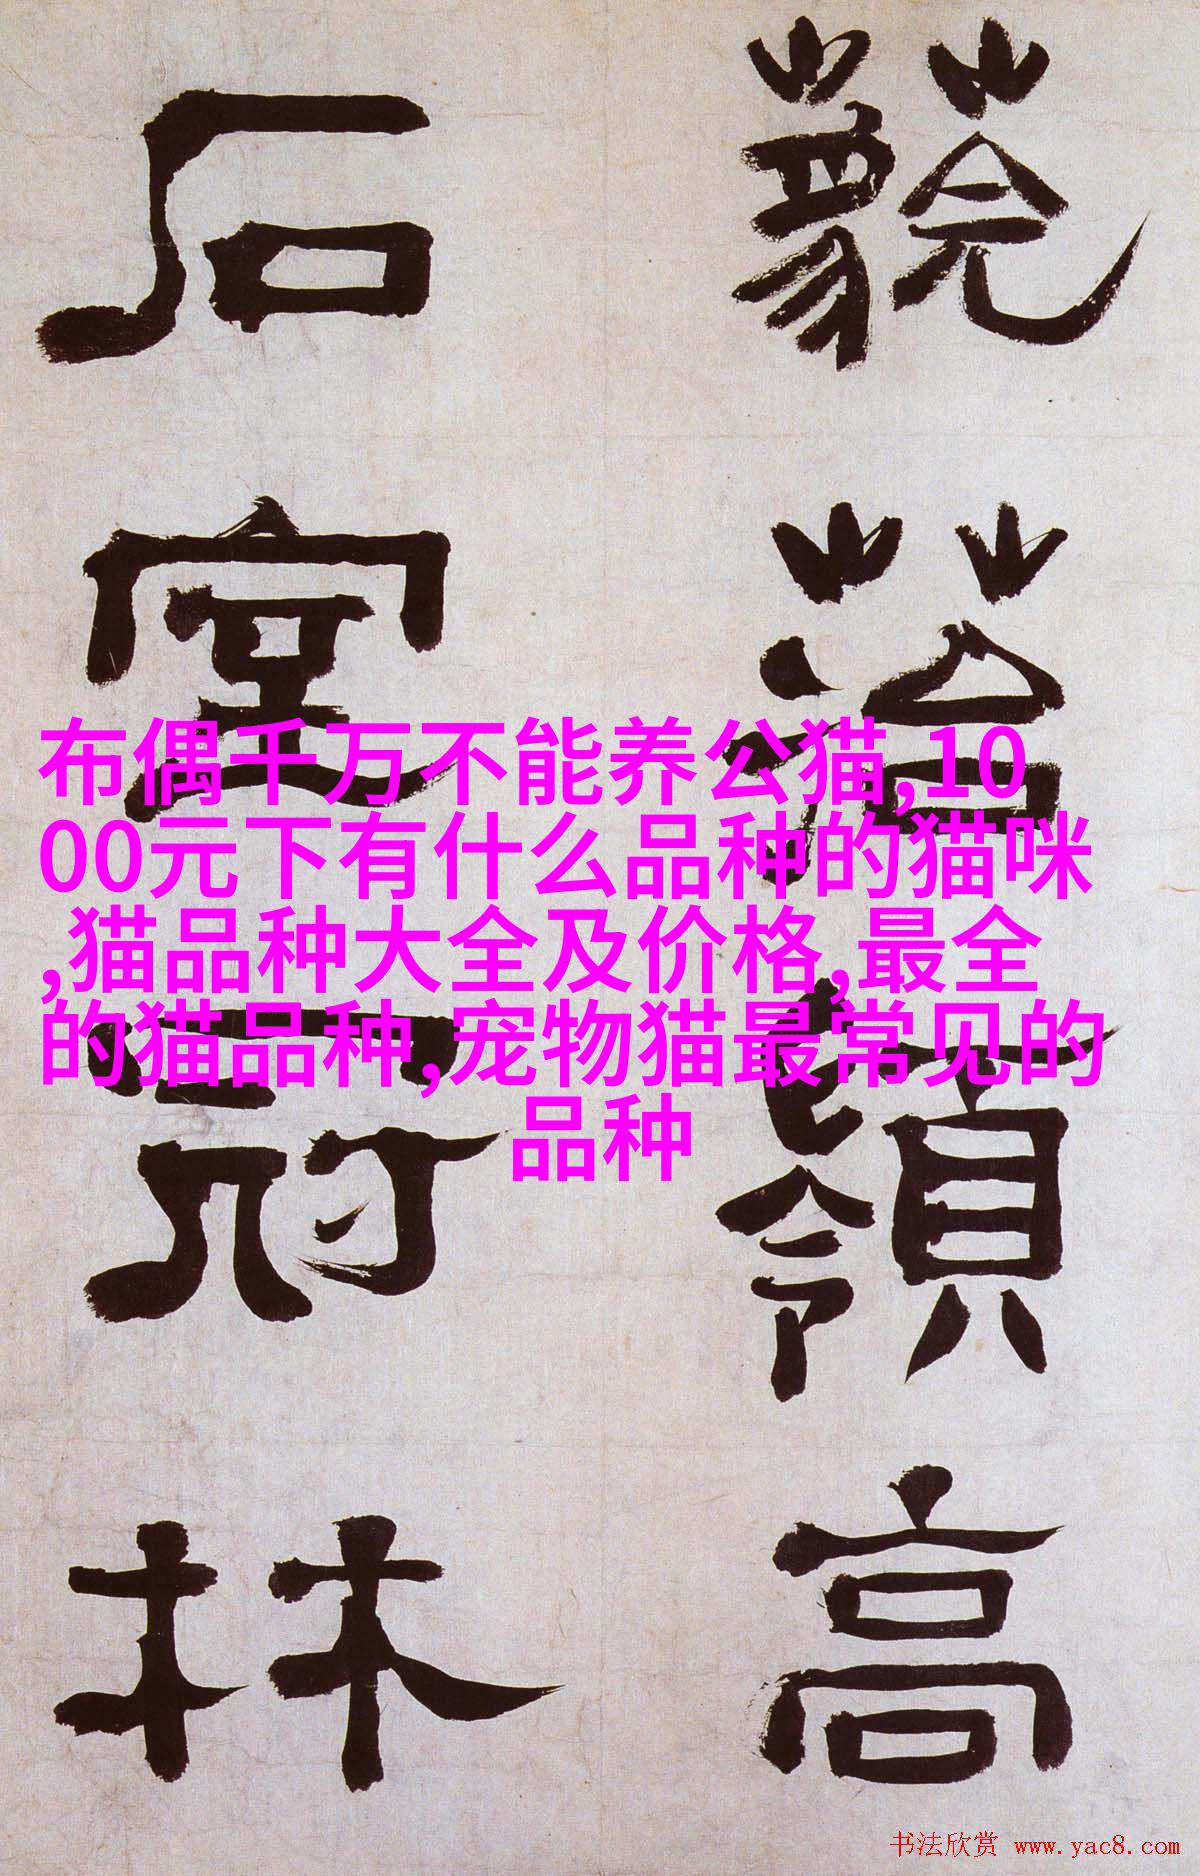 嶺高
石室冠林
布偶千万不能养公猫,10
00元下有什么品种的猫咪
,猫品种大全及价格,最全
的猫品种,宠物猫最常见的
品种
书法欣赏 www.yac8.com